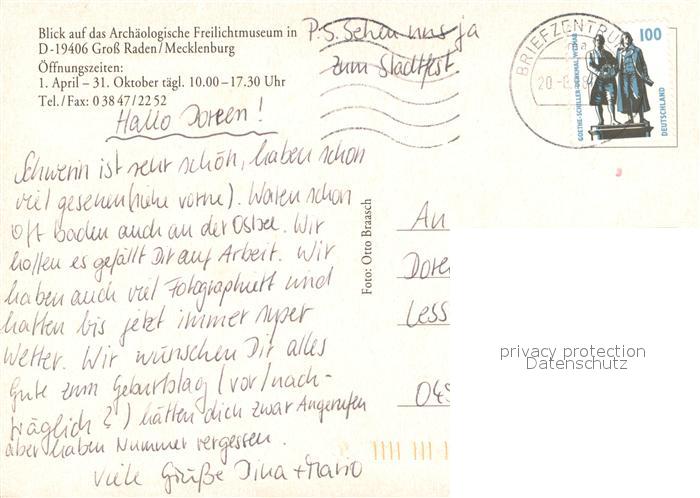 Blick auf das Archäologische Freilichtmuseum in
D-19406 Groß Raden/Mecklenburg
Öffnungszeiten:
1. April – 31. Oktober tägl. 10.00 – 17.30 Uhr
Tel./Fax: 0 38 47/22 52
P.S. Sehen uns ja
zum Stadtfest.
BRIEFZENTRUM
20.-8.
100
GOETHE-SCHILLER-DENKMAL WEIMAR
DEUTSCHLAND
Hallo Doreen!
Schwerin ist sehr schön, haben schon
viel gesehen (siehe vorne). Waren schon
oft baden auch an der Ostsee. Wir
hoffen es gefällt Dir auf Arbeit. Wir
haben auch viel Fotographiert und
hatten bis jetzt immer super
Wetter. Wir wünschen Dir alles
Gute zum Geburtstag (vor/nach-
träglich?) hätten dich zwar Angerufen
aber haben Nummer vergessen.
Viele Grüße Dina + Mario
Foto: Otto Braasch
An
Dore
Less
04
privacy protection
Datenschutz